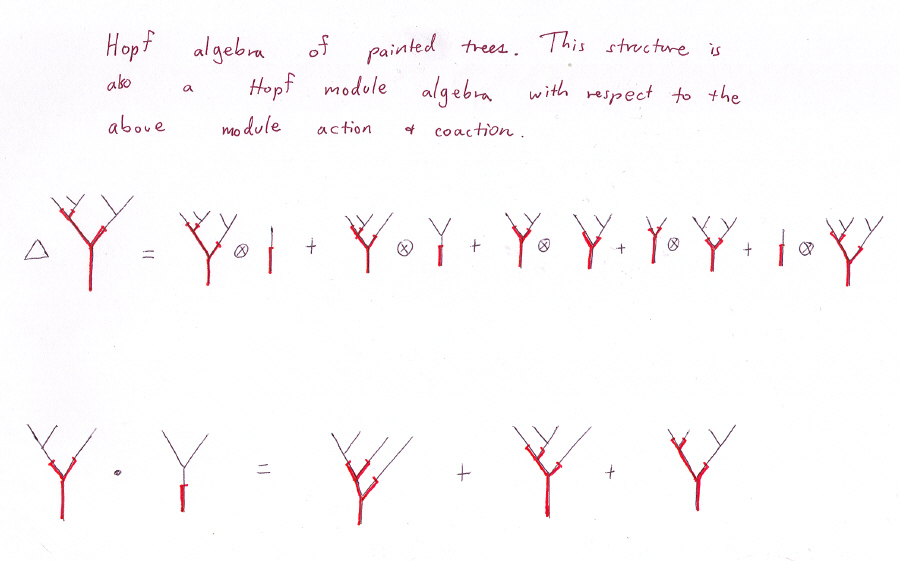 Hopf algebra of painted trees. This structure is
also a Hopf module algebra with respect to the
above module action & coaction.
△ = ⊗ + ⊗ + ⊗ + ⊗ + ⊗
· = + +